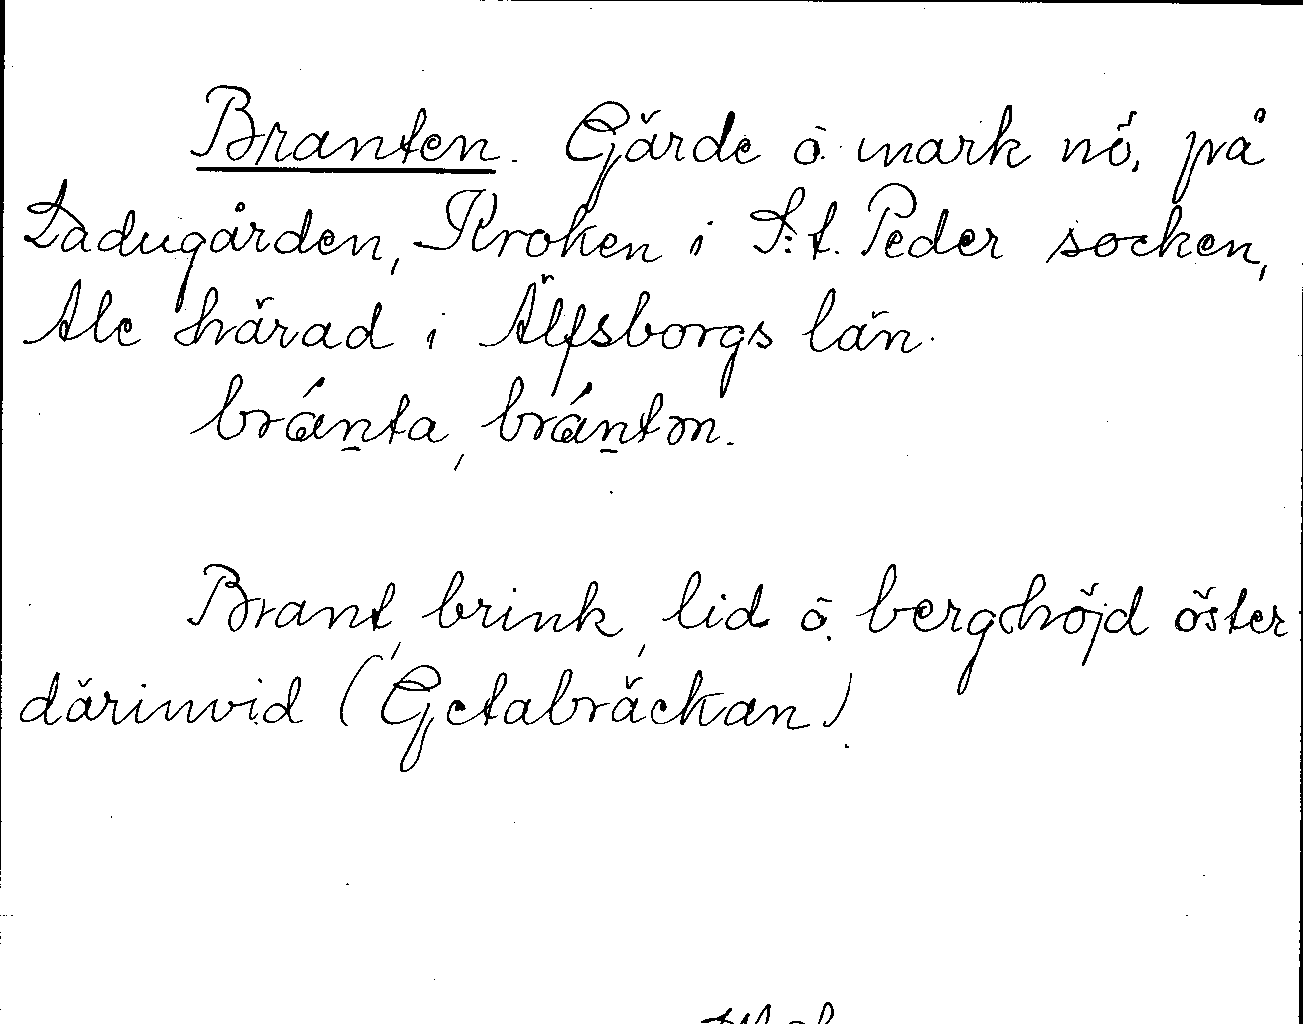 Branten. Gärde ö. mark nö. på
Ladugården, Kroken i S:t. Peder socken,
Ale härad i Älfsborgs län.
bránta, bránton.
Brant, brink, lid ö. bergshöjd öster
därinvid (Getabräckan).